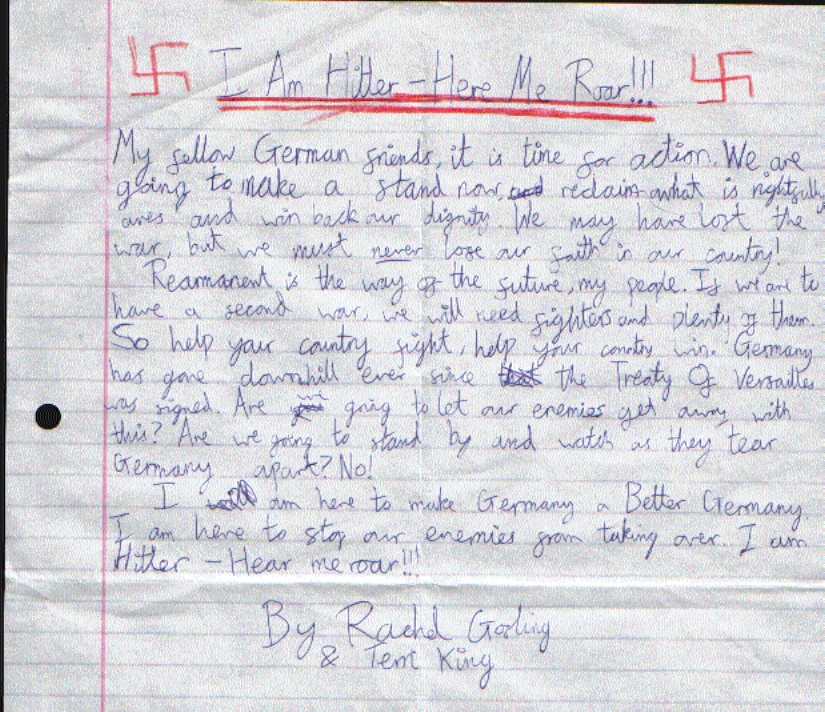 I Am Hitler - Here Me Roar!!!
My fellow German friends, it is time for action. We are
going to make a stand now, and reclaim what is rightfully
ares and win back our dignity. We may have lost the
war, but we must never lose our faith in our country!
Rearmanent is the way of the future, my people. If we are to
have a second war, we will need fighters and plenty of them.
So help your country fight, help your country win. Germany
has gone downhill ever since the Treaty Of Versailles
was signed. Are going to let our enemies get away with
this? Are we going to stand by and watch as they tear
Germany apart? No!
I am here to make Germany a Better Germany.
I am here to stop our enemies from taking over. I am
Hitler - Hear me roar!!!
By Rachel Gosling
& Terri King